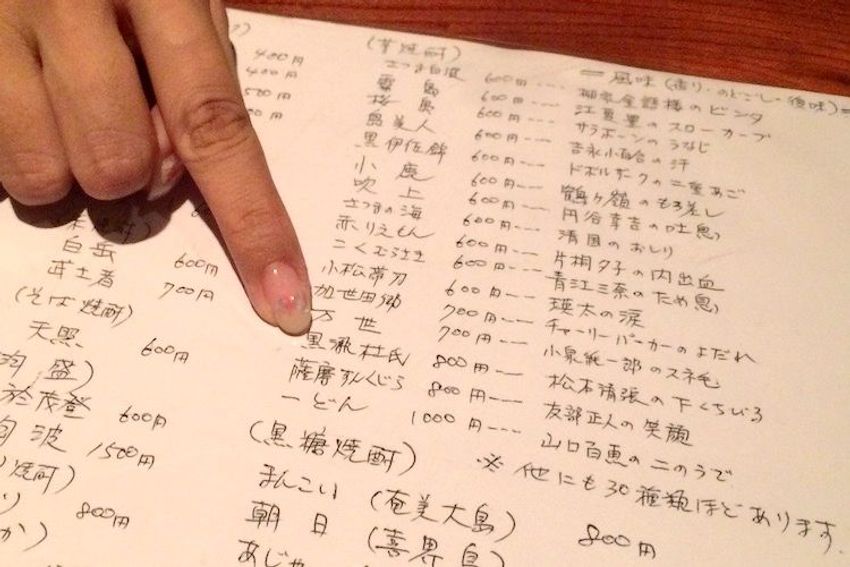 400円
400円
500円
白岳 600円
武士者 700円
(そば焼酎)
天照 600円
泡盛)
於茂登 600円
波 1500円
焼酎)
800円
(芋焼酎) 一風味(香り・のどごし・後味)一
さつま白波 600円---- 柳家金語楼のビンタ
霧島 600円---- 江夏豊のスローカーブ
桜島 600円---- サラボーンのうなじ
島美人 600円---- 吉永小百合の汗
黒伊佐錦 600円---- ドボルザークの二重あご
小鹿 600円---- 鶴ヶ嶺のもろ差し
吹上 600円---- 円谷幸吉の吐息
さつまの海 600円---- 清国のおしり
赤りえもん 600円---- 片桐夕子の内出血
こくむろ泣き 600円---- 青江三奈のため息
小松帯刀 600円---- 瑛太の涙
加世田郷 700円---- チャーリーパーカーのよだれ
万世 700円---- 小泉純一郎のスネ毛
黒瀬杜氏 800円---- 松本清張の下くちびる
薩摩すんくじら 800円---- 友部正人の笑顔
一どん 1000円---- 山口百恵の二のうで
※ 他にも30種類ほどあります.
(黒糖焼酎)
まんこい (奄美大島) 800円
朝日 (喜界島)
あじゃ